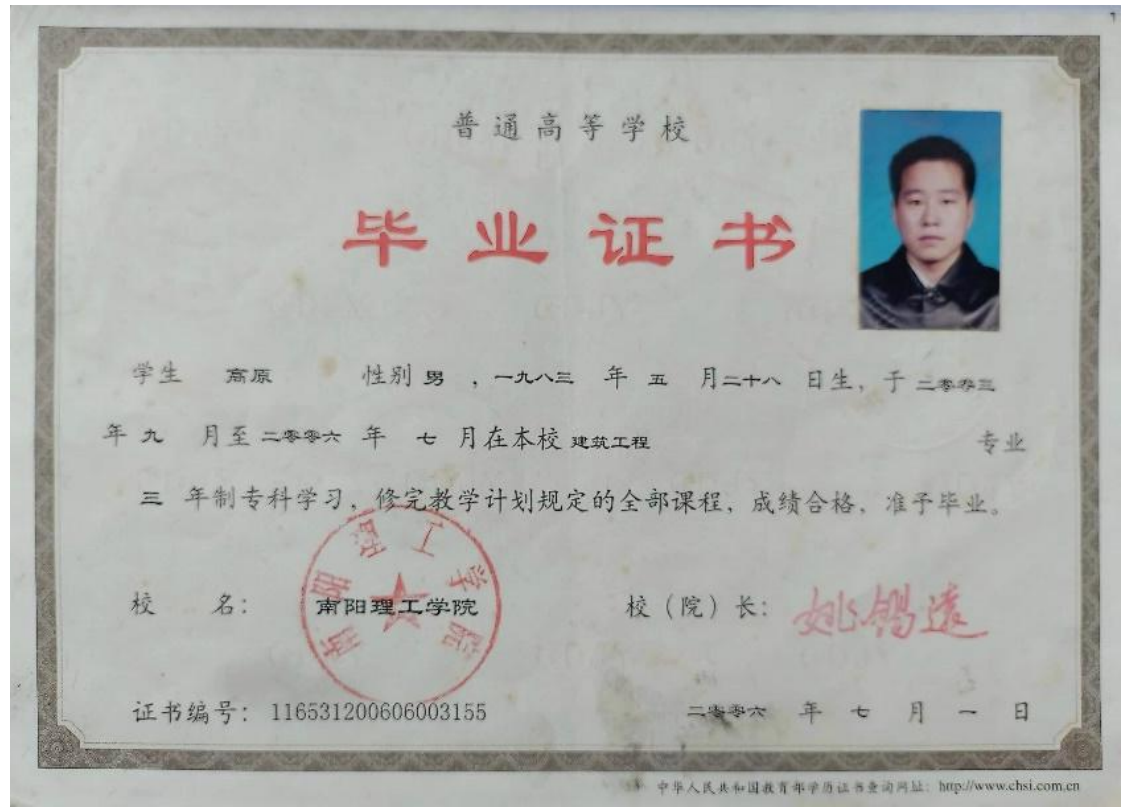 普通高等学校
毕业证书
学生 高原 性别 男 ，一九八三 年 五 月二十八 日生，于 二零零三
年 九 月至 二零零六 年 七 月在本校 建筑工程 专业
三 年制专科学习，修完教学计划规定的全部课程，成绩合格，准予毕业。
南阳理工学院
校 名： 南阳理工学院 校（院）长： 姚锡远
证书编号： 116531200606003155 二零零六 年 七 月 一 日
中华人民共和国教育部学历证书查询网址： http://www.chsi.com.cn